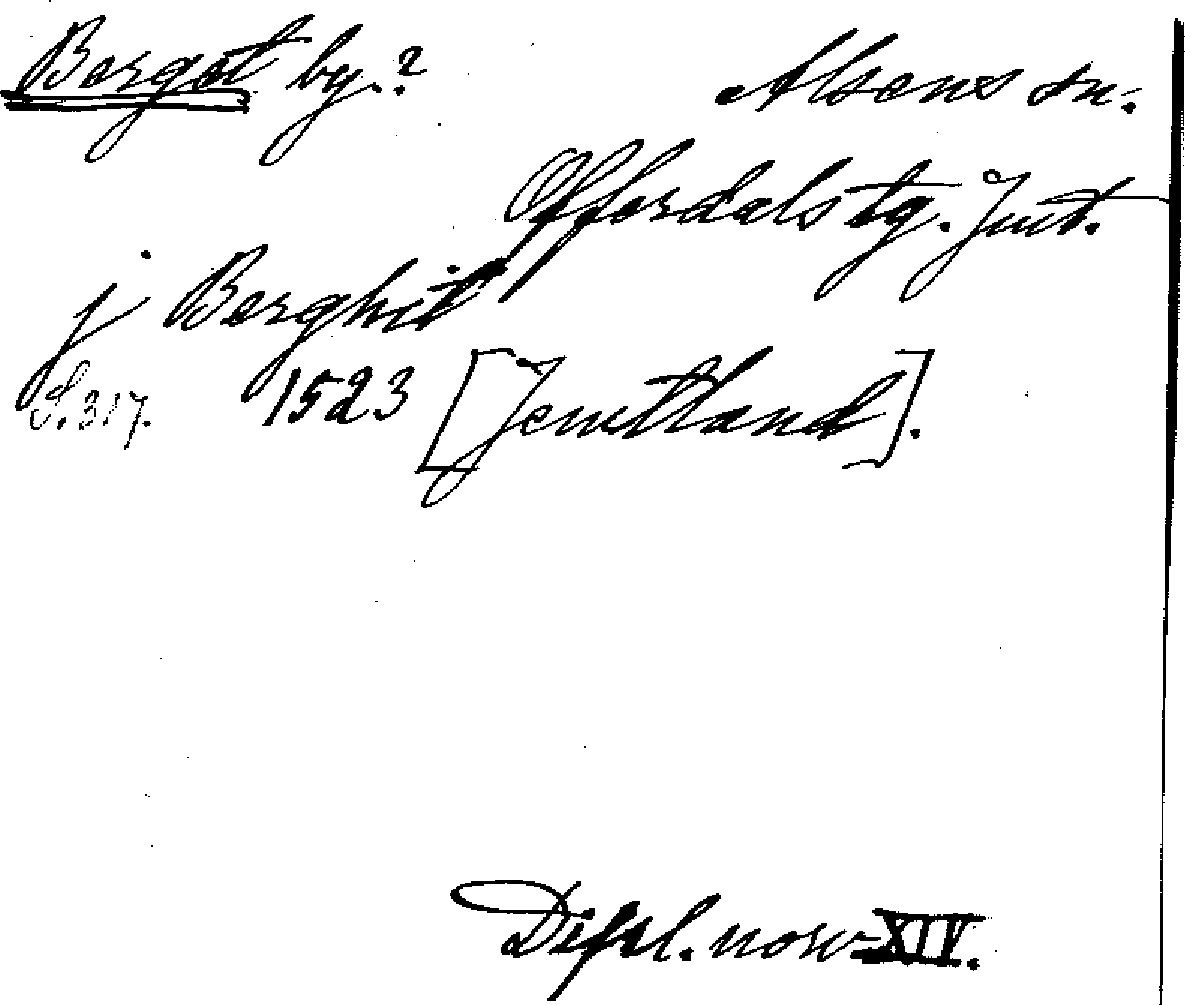 Berget by.? Alsens sn.
Offerdals tg. Jmt.
j Berghit
S. 317. 1523 [Jemtland].
Dipl. norv XIV.